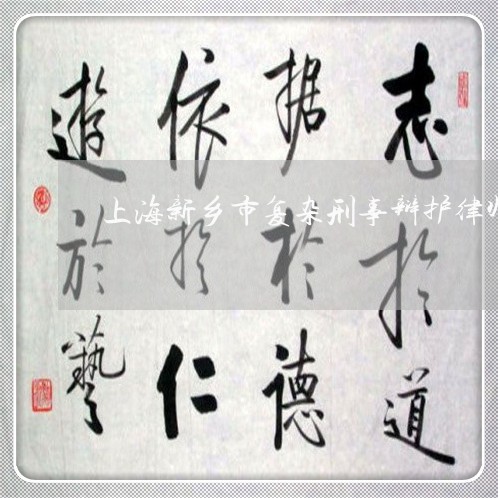 志於道
据於德
依於仁
遊於藝
上海新乡市复杂刑事辩护律